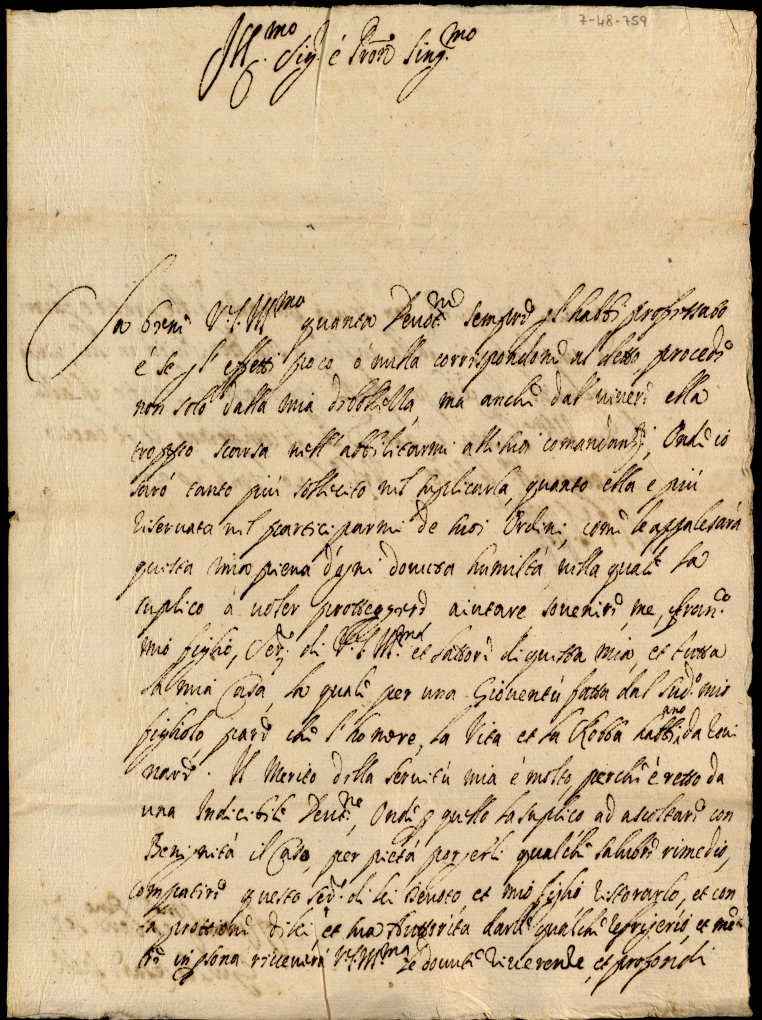 7-48-759
Ill.mo Sig.r é Pron Sing.mo
Sa bene V.S. Ill.ma quanta Deuot.ne sempre gl'habbi professato
é se gl'effetti poco ò nulla corrispondono al detto, procede
non solo dalla mia debbolezza, ma anche dal uiuere ella
troppo scarsa nell'abbilitarmi alli suoi comandanti, Onde io
saró tanto piú sollecito nel suplicarla, quanto ella e piú
riseruata nel participarmi de suoi Ordini, come le appalesará
questa mia piena d'ogni douuta humiltá, nella quale la
suplico á uoler proteggere aiutare souenire, me, Fran.co
mio figlio, Ser.e di V.S. Ill.ma et lattore di questa mia, et tutta
la mia Casa, la quale per una Giouentú fatta dal sud.o mio
figliolo pare che l'honore, la Vita et la Robba habbiano da roui
nare. Il Merito della seruitú mia é molto, perche é retto da
una Indicibile Deuot.ne, Onde p questo la suplico ad ascoltare con
Benignitá il Caso, per pietá porgerli qualche salubre rimedio,
Compatire questo ser.e di lei deuoto, et mio figlio ristorarlo, et con
la protetione di lei, et sua Auttorita darli qualche refrigerio, et me
in psona riceuerá V.S. Ill.ma le douute riuerenze, et profondi